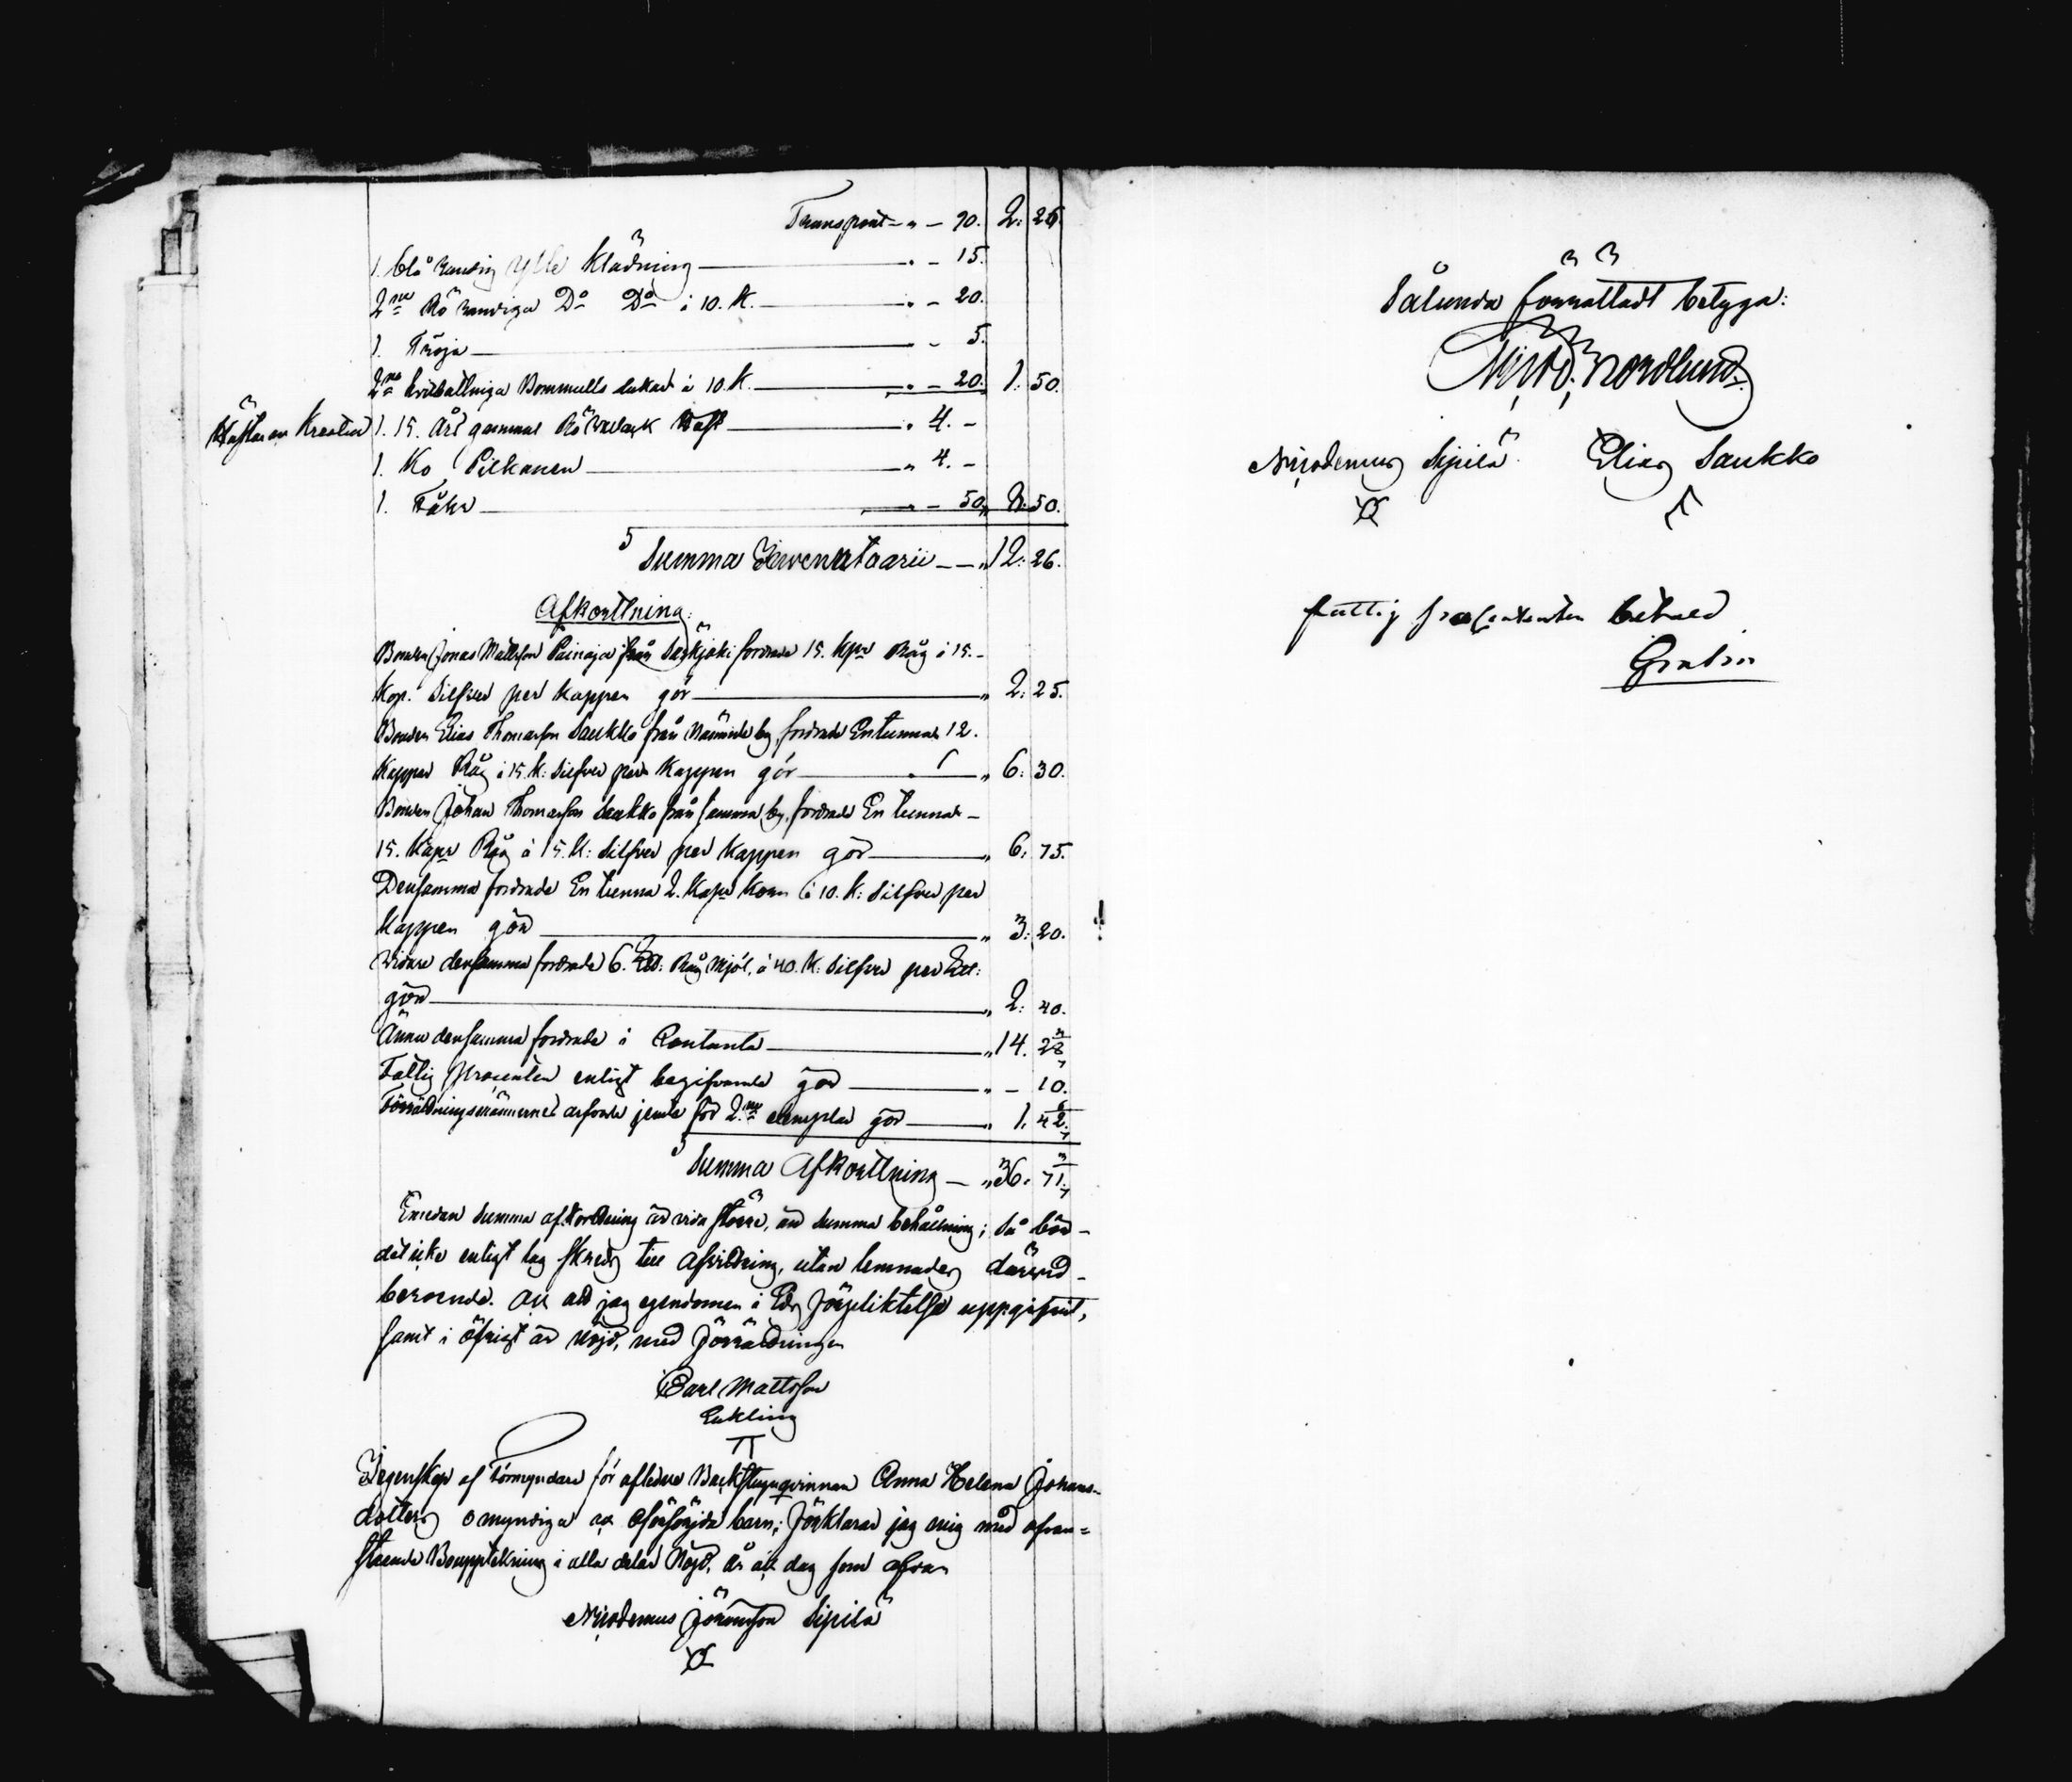 Transport - „ - 90. 2: 26.
1. blå randig ylle klädning „ - 15.
2ne Rö randiga Do Do à 10. K. „ - 20.
1. Tröja „ - 5.
2ne hvitbattniga Bommulls dukar à 10. K. „ - 20. 1: 50.
Hästar och Kreatur
1. 15. års gammal Rö Häst „ 4. -
1. Ko Pilkanen „ 4. -
1. Fåhr „ - 50. 8: 50.
Summa Inventaarii - - „ 12: 26.
Afkorttning:
Bonden Jonas Mattsson Painaja från Sääkjoki fordrade 15. Kpr Råg à 15. -
Kop. Silfver per kappen gör „ 2: 25.
Bonden Elias Thomasson Saukko från by, fordrade En tunna 12.
Kappar Råg à 15. K: Silfver per Kappen gör „ 6: 30.
Bonden Johan Thomasson Saukko från samma by, fordrade En tunna -
15. Kapr Råg à 15. K: Silfver per Kappen gör „ 6. 75.
Densamma fordrade En tunna 2. Kapr Korn à 10. K: Silfver per
Kappen gör „ 3: 20.
Vidare densamma fordrade 6. Råg Mjöl, à 40. K: Silfver per
gör „ 2: 40.
Ännu densamma fordrade i Contanta „ 14. 28 3/7
Fattig Procenten enligt begifvande gör „ - 10.
Förrättningsmännernes arfvode jemte för 2ne exemplar gör „ 1. 42. 6/7
Summa Afkorttning - „ 36. 71. 3/7
Emedan Summa afkorttning är vida större, än Summa behållning; så bör -
det icke enligt lag skrids till afvittring, utan lemnades därvid -
beroende. Och att jag egendomen i Eds förpliktelse uppgifvit,
samt i öfrigt är nöjd, med förrättningen
Carl Mattsson
Enkling
I Egenskap af Förmyndare för aflidne Backstuguqvinnan Anna Helena Johans-
dotters omyndiga och oförsörjda barn; förklarar jag mig med ofvan=
stående Bouppteckning i alla delar Nöjd, år och dag som ofvan
Nicodemus Johansson Sipilä
Sålunda förrättadt betyga:
Nordlund.
Nicodemus Sipilä Elias Saukko
fattig procenten betald